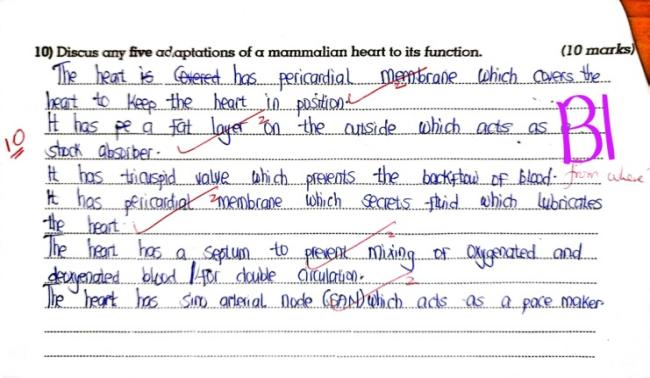 10) Discus any five adaptations of a mammalian heart to its function. (10 marks)
The heart is Covered has pericardial membrane which covers the
heart to keep the heart in position 2
It has pe a fat layer on the outside which acts as B1
10 shock absorber. 2
It has tricuspid valve which prevents the backflow of blood. from where
It has pericardial membrane which secrets fluid which lubricates
the heart. 2
The heart has a septum to prevent mixing of oxygenated and
deoxyenated blood / for double circulation. 2
The heart has sino arterial node (SAN) which acts as a pace maker. 2